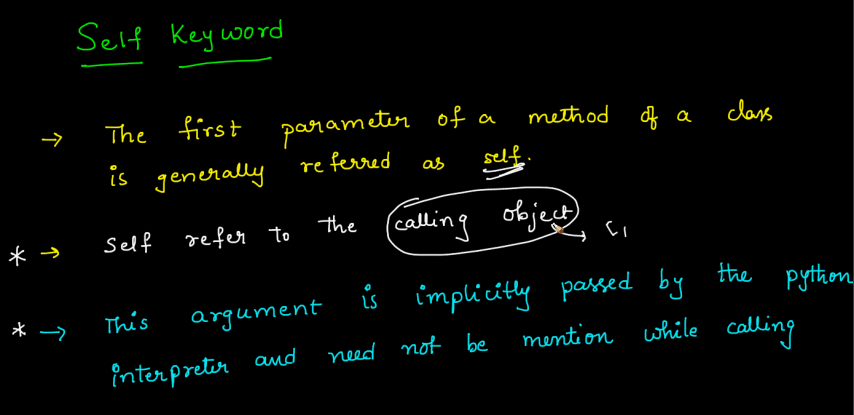 Self Keyword
→ The first parameter of a method of a class
is generally referred as self.
* → Self refer to the calling object → c1
* → This argument is implicitly passed by the python
interpreter and need not be mention while calling